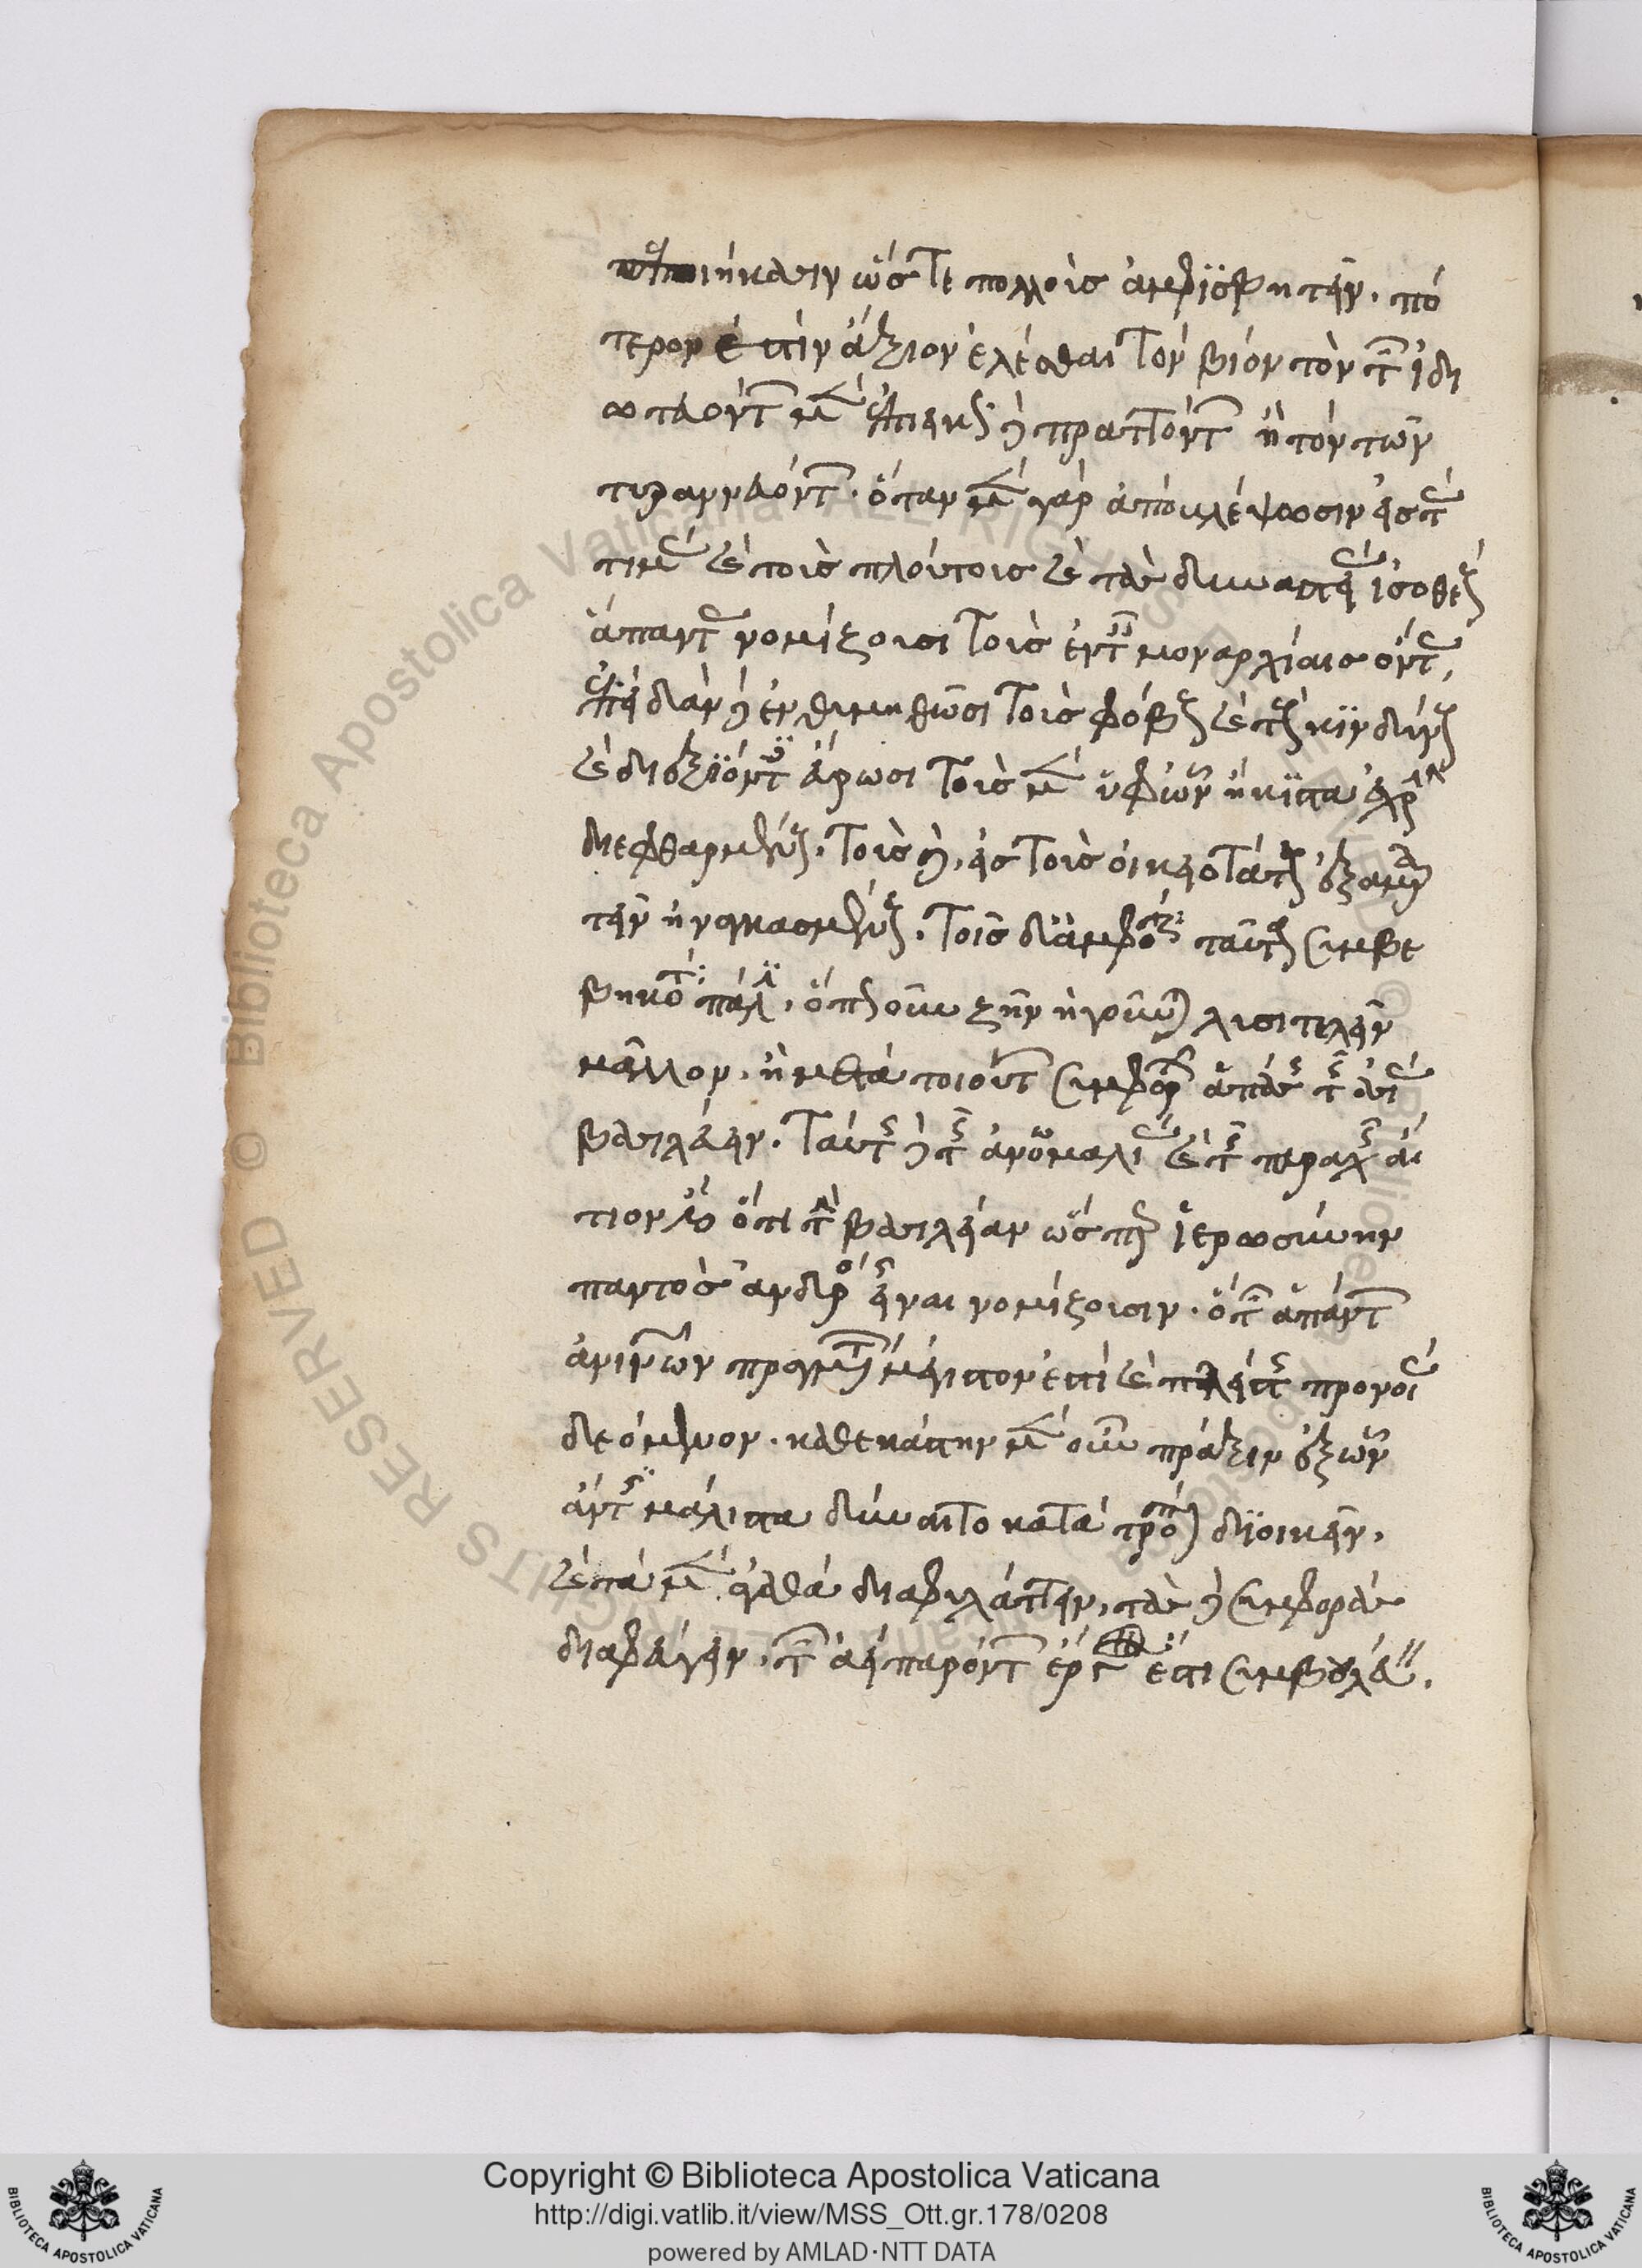 πεποιήκασιν ὥστε πολλοὺς ἀμφισβητεῖν. πό
τερον ἐστὶν ἄξιον ἑλέσθαι τὸν βίον τὸν τῶν ἰδι
ωτευόντων μὲν ἐπιεικῶς δὲ πραττόντων ἢ τὸν τῶν
τυραννευόντων. ὅταν μὲν γὰρ ἀποβλέψωσιν εἰς τὰς
τιμὰς καὶ τοὺς πλούτους καὶ τὰς δυναστείας ἰσοθέους
ἅπαντας νομίζουσι τοὺς ἐν ταῖς μοναρχίαις ὄντας,
ἐπειδὰν δὲ ἐνθυμηθῶσι τοὺς φόβους καὶ τοὺς κινδύνους
καὶ διεξιόντες εὕρωσι τοὺς μὲν ὑφ' ὧν ἥκιστα ἐχρῆν
διεφθαρμένους. τοὺς δὲ εἰς τοὺς οἰκειοτάτους ἐξαμαρ
τεῖν ἠναγκασμένους. τοῖς δ' ἀμφότερα ταῦτα συμβε
βηκότα πάλιν, ὁπωσοῦν ζῆν ἡγοῦνται λυσιτελεῖν
μᾶλλον. ἢ μετὰ τοιούτων συμφορῶν ἁπάσης τῆς ἀσίας
βασιλεύειν. ταύτης δὲ τῆς ἀνωμαλίας καὶ τῆς ταραχῆς αἴ
τιόν ἐστιν ὅτι τὴν βασιλείαν ὥσπερ ἱερωσύνην
παντὸς ἀνδρὸς εἶναι νομίζουσιν. ὃ τῶν ἁπάντων
ἀνθρωπίνων πραγμάτων μέγιστόν ἐστι καὶ πλείστης προνοίας
δεόμενον. καθ' ἑκάστην μὲν οὖν πρᾶξιν ἐξ ὧν
ἄν τις μάλιστα δύναιτο κατὰ τρόπον διοικεῖν.
καὶ τὰ μὲν ἀγαθὰ διαφυλάττειν, τὰς δὲ συμφορὰς
διαφεύγειν. τῶν ἀεὶ παρόντων ἔργον ἐστὶ συμβουλεύειν.
Copyright © Biblioteca Apostolica Vaticana
http://digi.vatlib.it/view/MSS_Ott.gr.178/0208
powered by AMLAD·NTT DATA